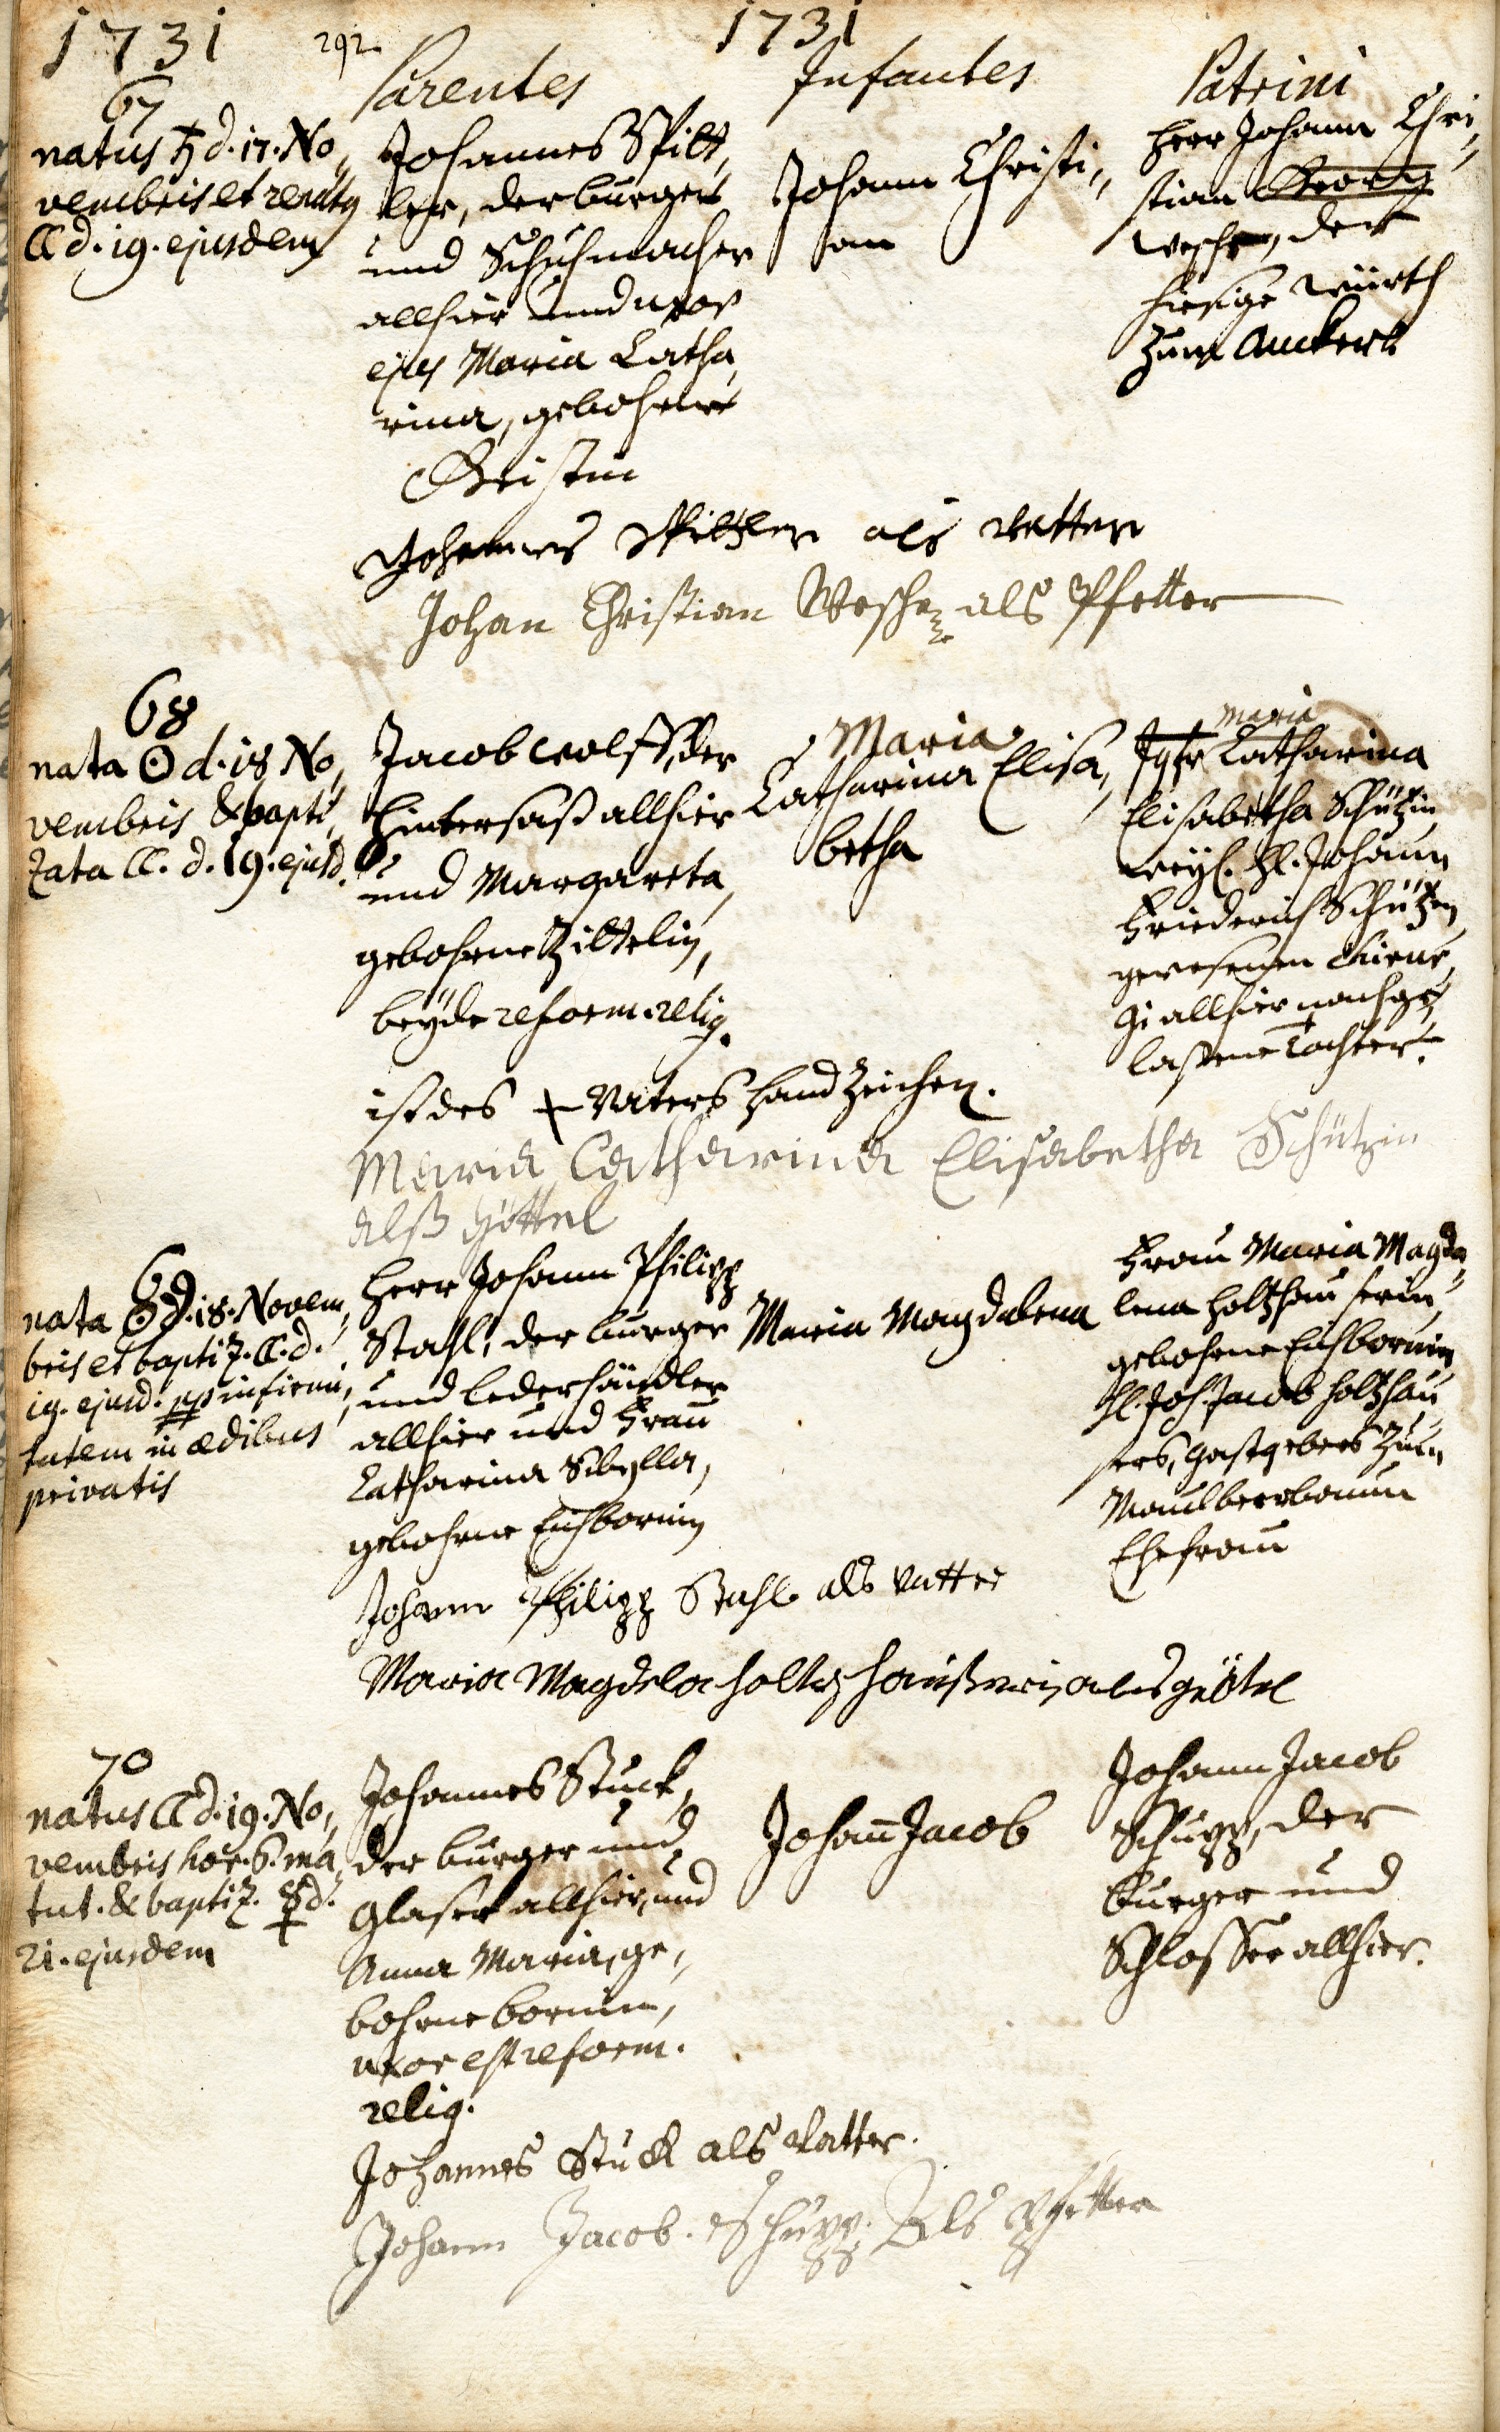 1731
292
1731
Parentes
Infantes
Patrini
67
natus ♄ d. 17. No,,
vembris et renatg
☾ d. 19. ejusdem
Johannes Spilt,,
ler, der burger
und Schuhmacher
allhier und uxor
ejus Maria Catha,,
rina, gebohrne
Geistin
Johann Christi,,
an
Herr Johann Chri,,
stian Georg
Wesche, der
hiesige Würth
zum Anckern
Johannes Spiltzler als Vatter
Johan Christian Wesche als Pfetter
68
nata ☉ d. 18 No,,
vembris & bapti,,
zata ☾. d. 19. ejusd.
Jacob Wolff, der
hintersaß allhier
und Margareta,
gebohrne Zittelin,
beyde reform. relig.
Maria
Catharina Elisa,,
betha
Maria
Jgfr Catharina
Elisabetha Schützin
weyl. H. Johann
Friederich Schützen
gewesenen Chirur,,
gi allhier nachge,,
laßene Tochter.
ist des + Vaters handzeichen.
Maria Catharina Elisabetha Schützin
alß Göttel
69
nata ☉ d. 18. Novem,,
bris et baptiz. ☾. d.
19. ejusd. infirmi,,
tatem in ædibus
privatis
Herr Johann Philipp
Stahl, der burger
und lederhändler
allhier und Frau
Catharina Sibylla,
gebohrne Eichbornin
Maria Magdalena
Frau Maria Magda,,
lena Holtzhauserin,
gebohrne Eichbornin
H. Joh. Jacob Holtzhau,,
sers, gastgebers zum
Maulbeerbaum
Ehefrau
Johann Philipp Stahl als vatter
Maria Magdela holtzhaußerin als götel
70
natus ☾ d. 19. No,,
vembris hor. 6. ma,,
tut. & baptiz. ☿ d.
21. ejusdem
Johannes Stuck,
der burger und
Glaser allhier, und
Anna Maria, ge,,
bohrne bornin,
uxor est reform.
relig.
Johann Jacob
Johann Jacob
Schupp, der
burger und
Schlosser allhier.
Johannes Stuck als Vatter.
Johann Jacob. Schupp. Als Pfetter